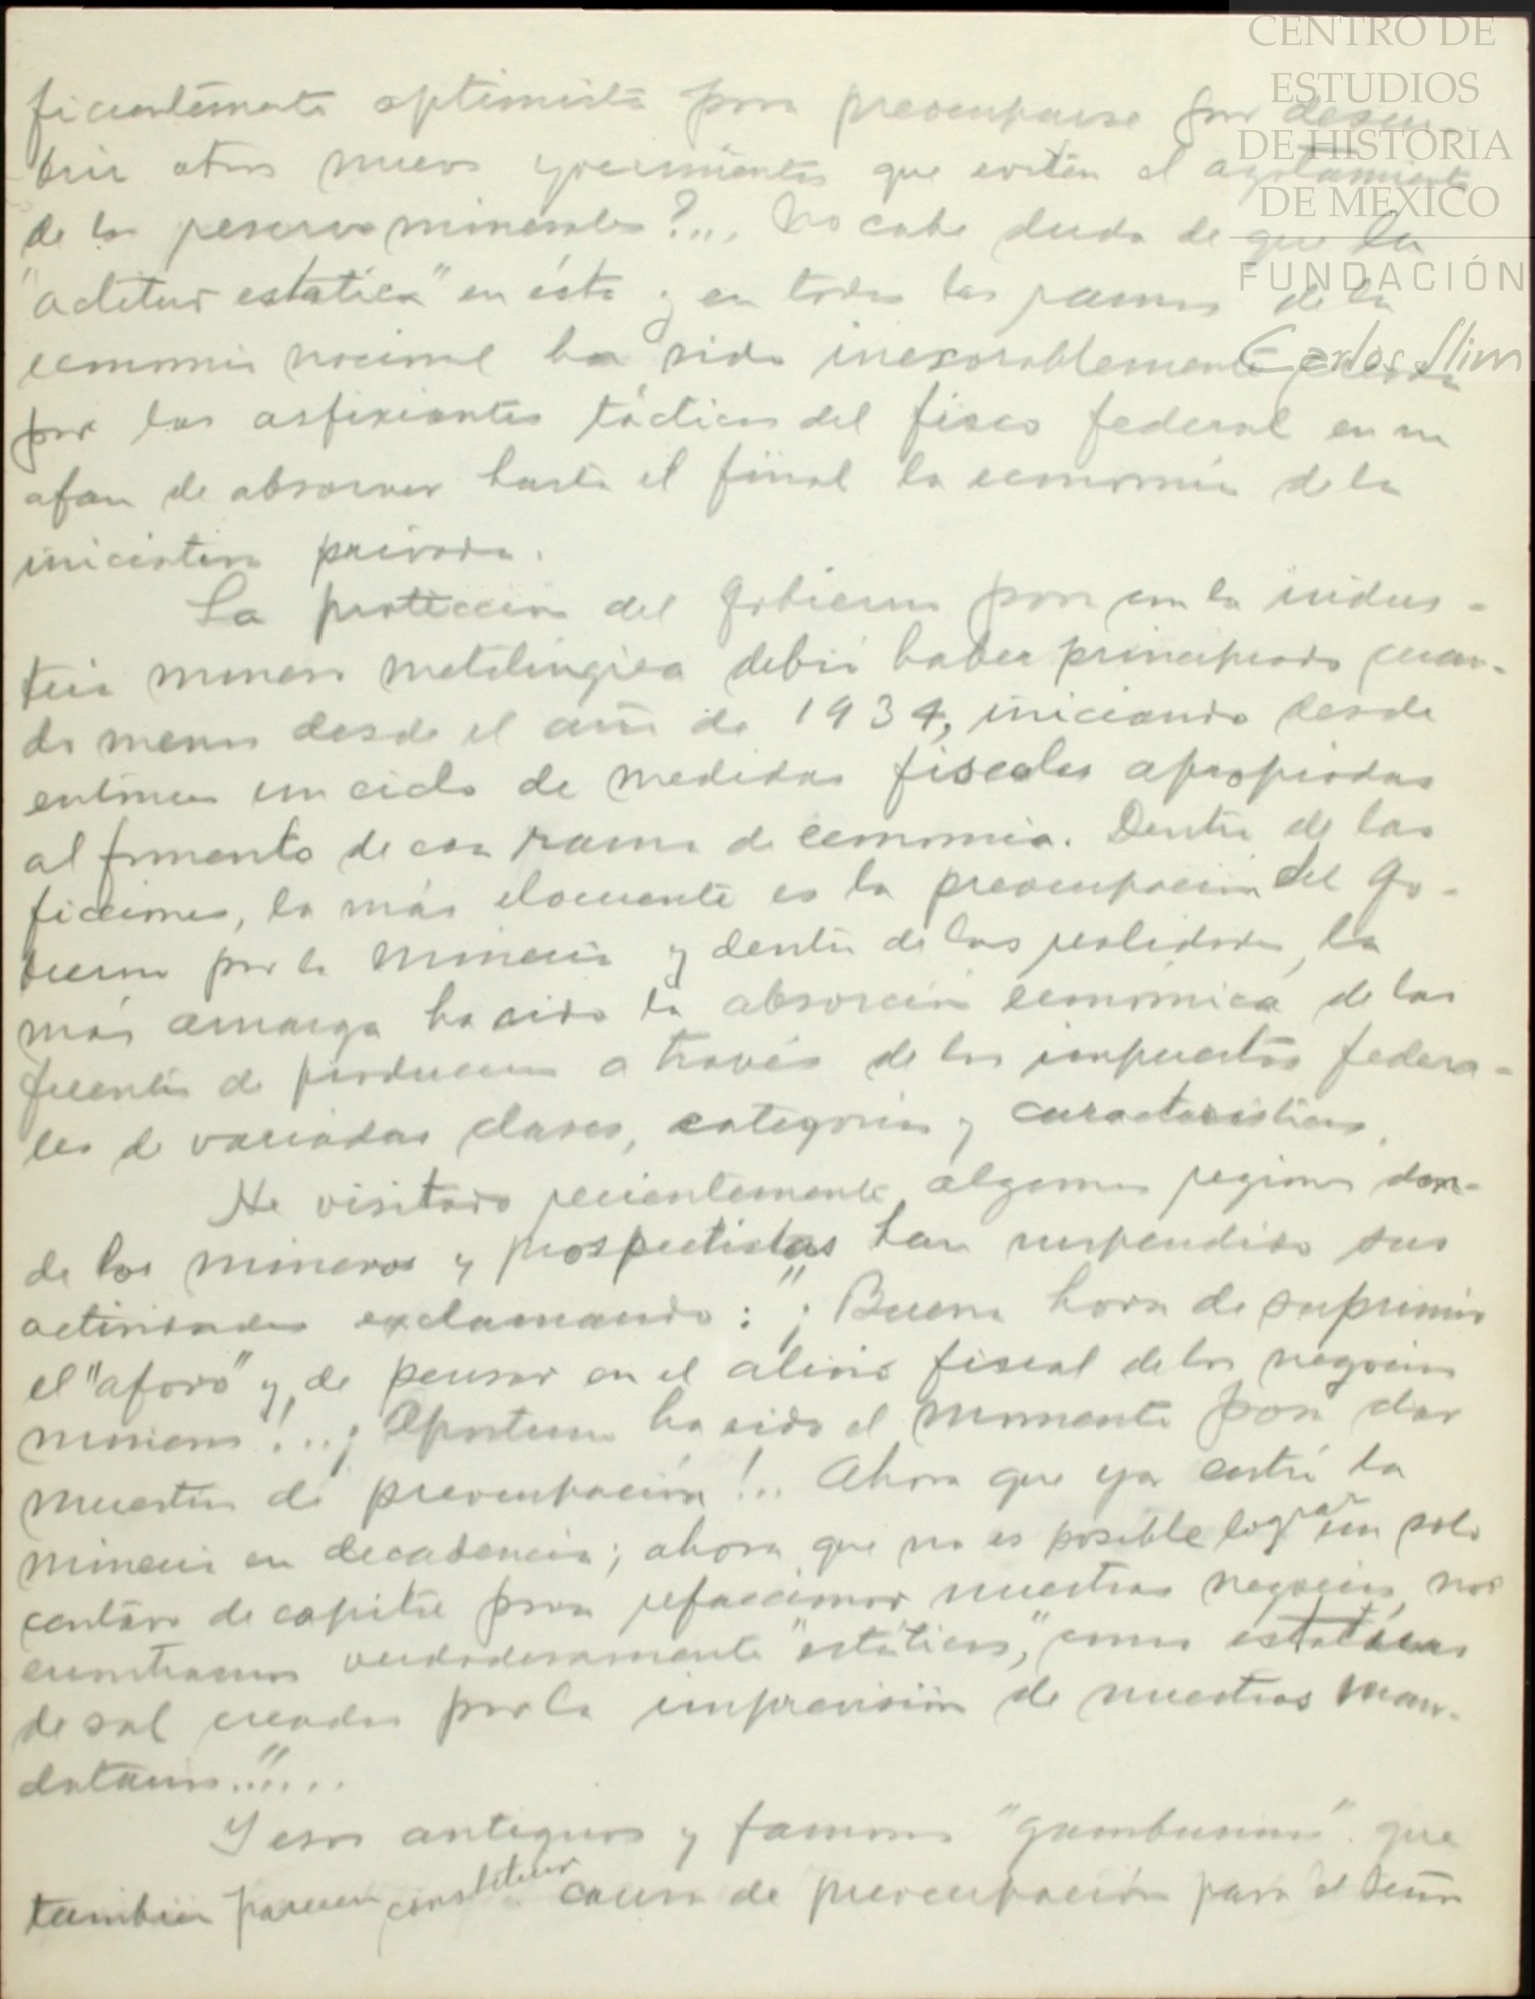 CENTRO DE
ESTUDIOS
DE HISTORIA
DE MEXICO
FUNDACIÓN
Carlos Slim
ficientemente optimista para preocuparse por descu-
brir otros nuevos yacimientos que eviten el agotamiento
de las reservas minerales?... No cabe duda de que la
"actitud estatica" en ésta y en todas las ramas de la
economia nacional ha sido inexorablemente creada
por las asfixiantes tácticas del fisco federal en su
afan de absorver hasta el final la economia de la
iniciativa privada.
La protección del Gobierno para con la indus-
tria minero metalúrgica debió haber principiado cuan-
do menos desde el año de 1934, iniciando desde
entonces un ciclo de medidas fiscales apropiadas
al fomento de esa rama de economia. Dentro de las
ficciones, la más elocuente es la preocupación del Go-
bierno por la mineria y dentro de las realidades, la
más amarga ha sido la absorción económica de las
fuentes de produccion a través de los impuestos federa-
les de variadas clases, categorias y caracteristicas.
He visitado recientemente algunas regiones don-
de los mineros y prospectistas han suspendido sus
actividades exclamando: "¡Buena hora de suprimir
el "aforo" y de pensar en el alivio fiscal de los negocios
mineros!...¡Oportuno ha sido el momento para dar
muestras de preocupación!.. Ahora que ya está la
mineria en decadencia; ahora que no es posible lograr un solo
centavo de capital para refaccionar nuestros negocios, nos
encontramos verdaderamente "estáticos," como estatuas
de sal creadas por la imprevisión de nuestros man-
datarios."....
Y esos antiguos y famosos "gambusinos" que
tambien parecen constituir causa de preocupación para el señor